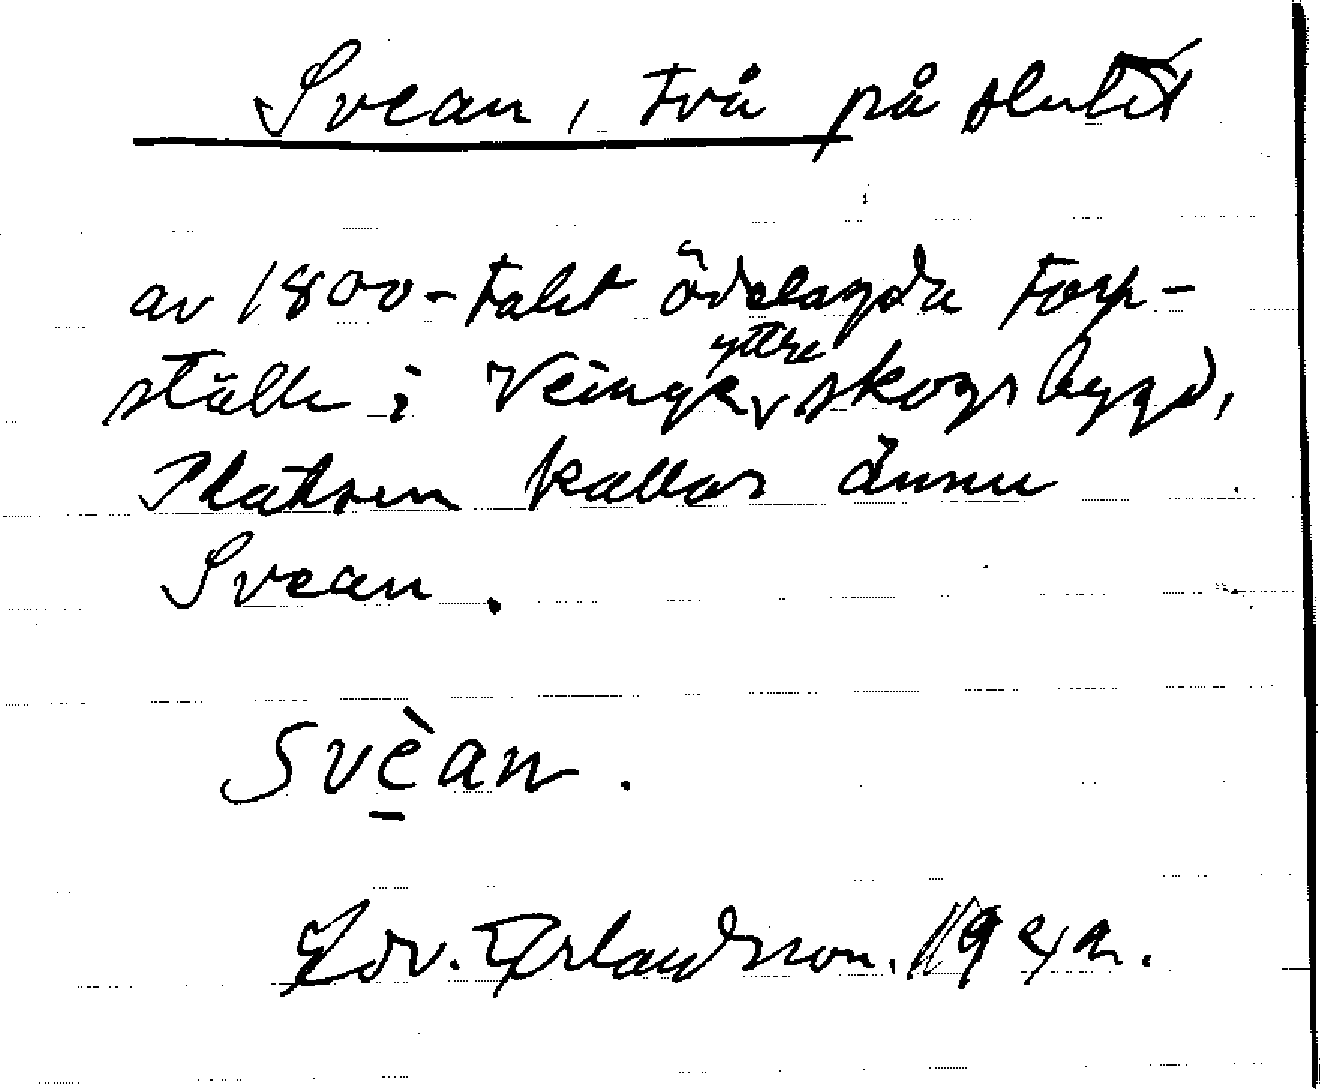 Svean, två på slutet
av 1800-talet ödelagda torp-
ställe i Veinge yttre skogsbygd,
Platsen kallas ännu
Svean.
Svèan.
Edv. Erlandsson. 1942.